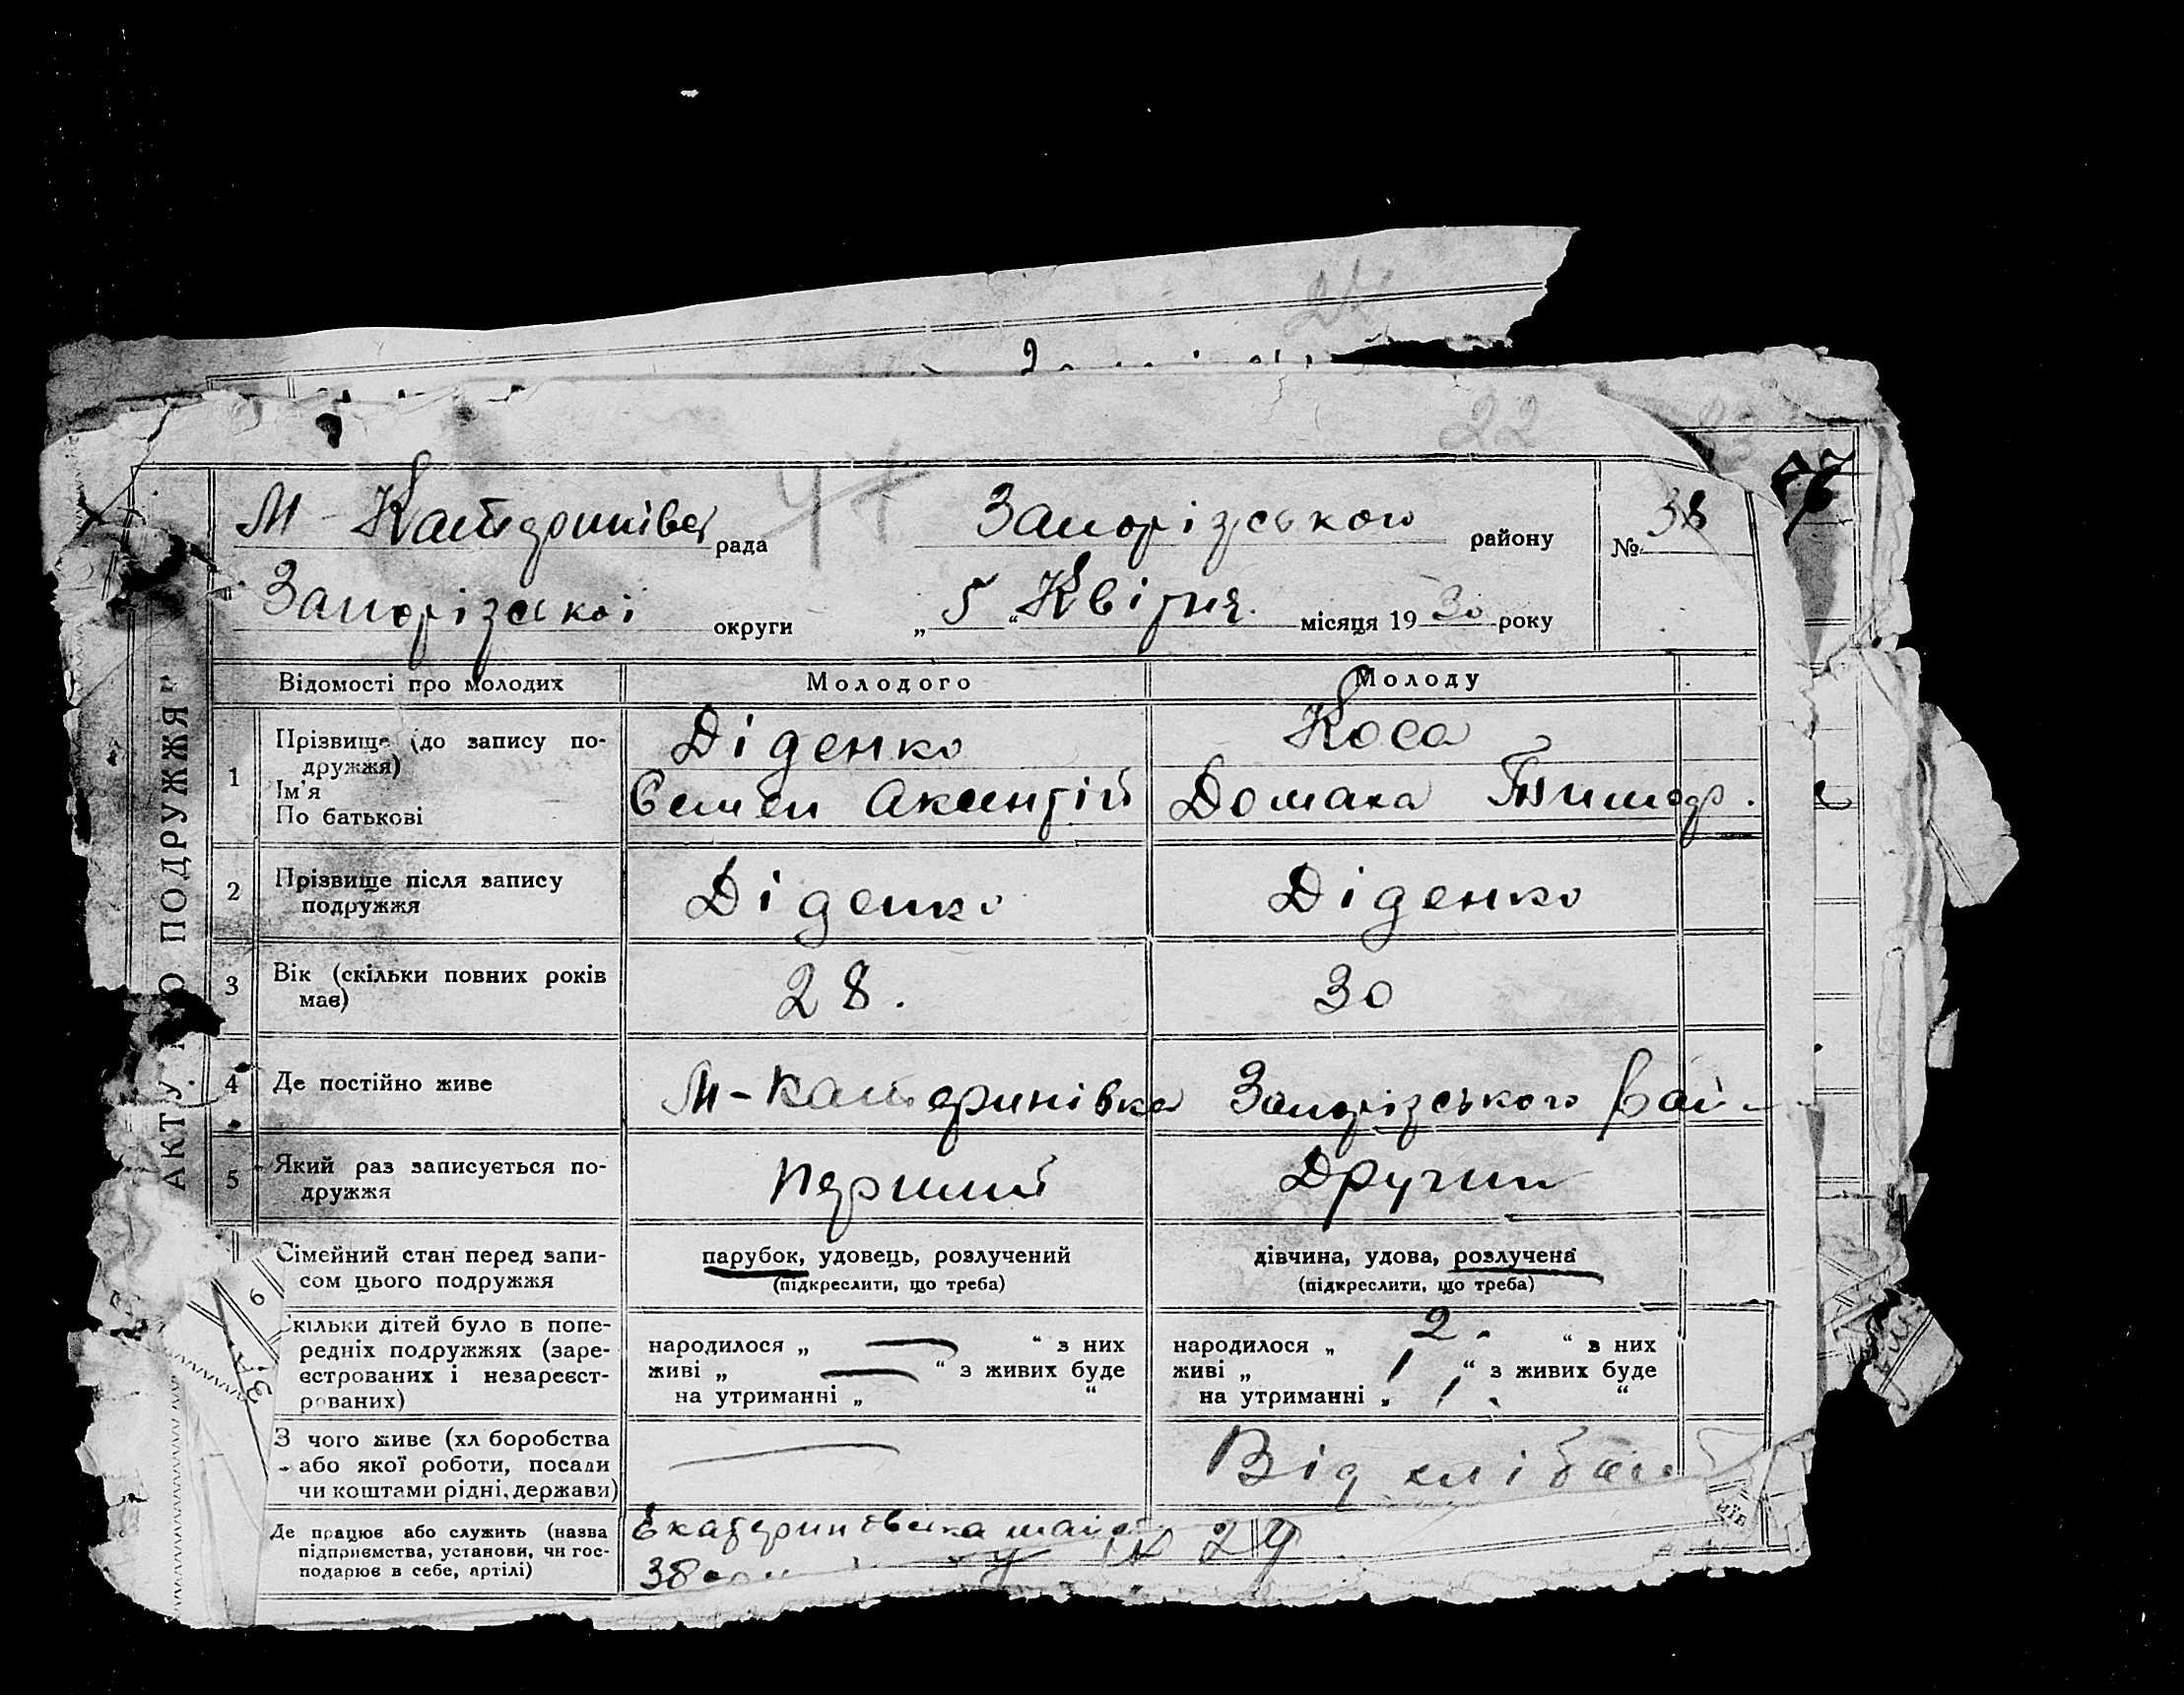 22
М-Катеринівка рада Запорізського району № 38
Запорізської округи „ 5 “ Квітня місяця 1930 року
АКТУ ПРО ПОДРУЖЖЯ
Відомості про молодих Молодого Молоду
1 Прізвище (до запису по-
дружжя)
Ім'я
По батькові
Діденко Коса
Семен Аксентій Домаха Тимоф.
2 Прізвище після запису
подружжя
Діденко Діденко
3 Вік (скільки повних років
має)
28. 30
4 Де постійно живе М-Катеринівка Запорізського рай
5 Який раз записується по-
дружжя
Перший Другий
6 Сімейний стан перед запи-
сом цього подружжя
парубок, удовець, розлучений дівчина, удова, розлучена
(підкреслити, що треба) (підкреслити, що треба)
Скільки дітей було в попе-
редніх подружжях (заре-
єстрованих і незареєст-
рованих)
народилося „ — “ з них народилося „ 2. “ з них
живі „ — “ з живих буде живі „ 1 “ з живих буде
на утриманні „ “ на утриманні „ 1. “
З чого живе (хліборобства
або якої роботи, посади
чи коштами рідні, держави)
— Від
Де працює або служить (назва
підприємства, установи, чи гос-
подарює в себе, артілі)
Екатеринівська 29
38